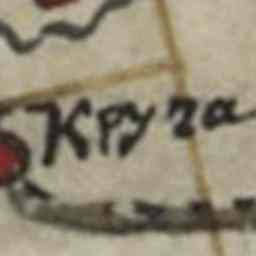 Круча